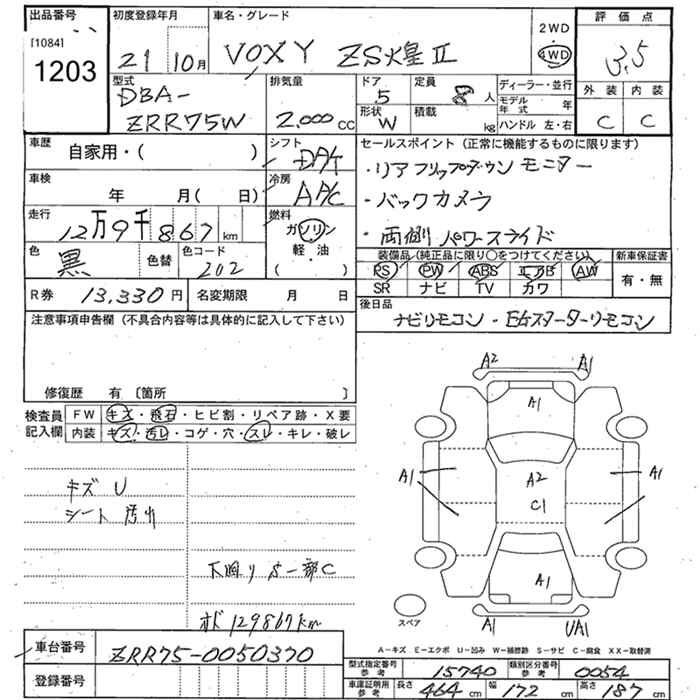 出品番号
[1084]
1203
初度登録年月
21 10月
車名・グレード
VOXY ZS煌Ⅱ
2WD
4WD
評価点
3.5
外装 内装
C C
型式
DBA-
ZRR75W
排気量
2.000 CC
ドア
5
形状
W
定員
8人
積載
kg
ディーラー・並行
モデル年式 年
ハンドル 左・右
車歴
自家用・( )
シフト
DAT
セールスポイント(正常に機能するものに限ります)
・リアフリップダウンモニター
・バックカメラ
・両側パワースライド
車検
年 月( 日)
冷房
A/C
走行
12万9千867km
燃料
ガソリン
軽・油
( )
色
黒
色替
色コード
202
装備品(純正品に限り○をつけてください)
PS PW ABS エアB AW
SR ナビ TV カワ
新車保証書
有・無
R券 13,330円
名変期限 月 日
後日品
ナビリモコン・Egスターターリモコン
注意事項申告欄(不具合内容等は具体的に記入して下さい)
修復歴 有〔箇所 〕
検査員記入欄
FW キズ・飛石・ヒビ割・リペア跡・X要
内装 キズ・汚レ・コゲ・穴・スレ・キレ・破レ
キズ U
シート汚れ
下廻りS一部C
オド129867km
A2 A1
A1
A1 A2 A1
C1
A1
A1 UA1
スペア
A-キズ E-エクボ U-凹み W-補修跡 S-サビ C-腐食 XX-取替済
車台番号 ZRR75-0050370
登録番号
型式指定番号 参考 15740
類別区分番号 参考 0054
車庫証明用 参考 長さ 464 cm 幅 172 cm 高さ 187 cm